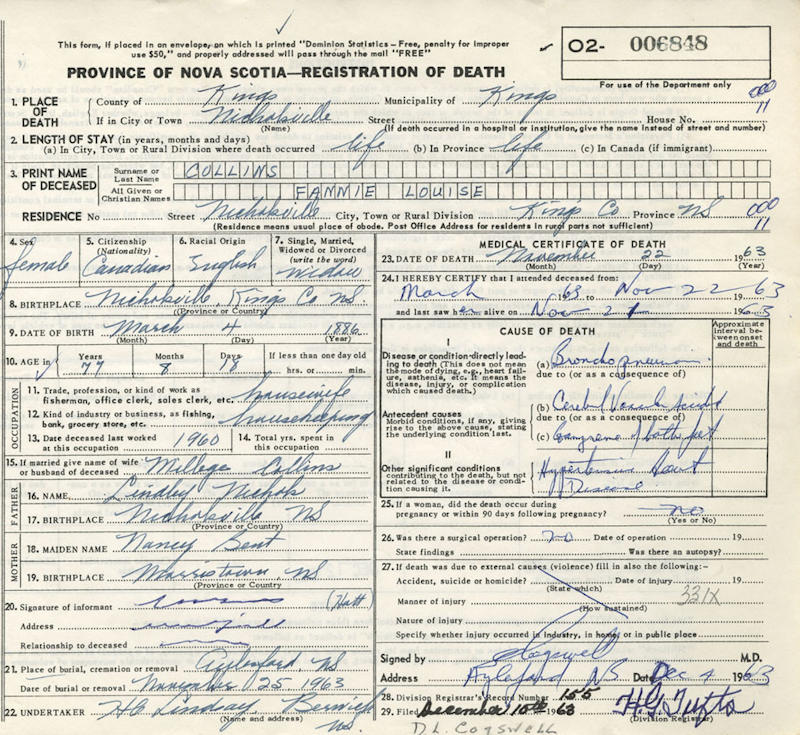 This form, if placed in an envelope, on which is printed "Dominion Statistics - Free, penalty for improper
use $50," and properly addressed will pass through the mail "FREE"
O2- 006848
PROVINCE OF NOVA SCOTIA—REGISTRATION OF DEATH
For use of the Department only
1. PLACE OF DEATH County of Kings Municipality of Kings 000
If in City or Town Nicholsville Street House No. 11
(Name) (If death occurred in a hospital or institution, give the name instead of street and number)
2. LENGTH OF STAY (in years, months and days)
(a) In City, Town or Rural Division where death occurred life (b) In Province life (c) In Canada (if immigrant)
3. PRINT NAME OF DECEASED Surname or Last Name COLLINS
All Given or Christian Names FANNIE LOUISE
RESIDENCE No Street Nicholsville City, Town or Rural Division Kings Co Province NS 000
(Residence means usual place of abode. Post Office Address for residents in rural parts not sufficient) 11
4. Sex female
5. Citizenship (Nationality) Canadian
6. Racial Origin English
7. Single, Married, Widowed or Divorced (write the word) widow
8. BIRTHPLACE Nicholsville, Kings Co NS.
(Province or Country)
9. DATE OF BIRTH March 4 1886
(Month) (Day) (Year)
10. AGE in Years Months Days If less than one day old
77 8 18 hrs. or min.
OCCUPATION
11. Trade, profession, or kind of work as fisherman, office clerk, sales clerk, etc. housewife
12. Kind of industry or business, as fishing, bank, grocery store, etc. housekeeping
13. Date deceased last worked at this occupation 1960
14. Total yrs. spent in this occupation
15. If married give name of wife or husband of deceased Millege Collins
FATHER
16. NAME Lindley Nichols
17. BIRTHPLACE Nicholsville NS
(Province or Country)
MOTHER
18. MAIDEN NAME Nancy Bent
19. BIRTHPLACE Morristown, NS
(Province or Country)
20. Signature of informant
Address
Relationship to deceased
21. Place of burial, cremation or removal NS
Date of burial or removal November 25 1963
22. UNDERTAKER HC Lindsay Berwick NS.
(Name and address)
MEDICAL CERTIFICATE OF DEATH
23. DATE OF DEATH November 22 1963
(Month) (Day) (Year)
24. I HEREBY CERTIFY that I attended deceased from:
March 63 to Nov 22 - 63
and last saw her alive on Nov 21 1963
CAUSE OF DEATH
Approximate interval between onset and death
I
Disease or condition directly leading to death (This does not mean the mode of dying, e.g. heart failure, asthenia, etc. It means the disease, injury, or complication which caused death.)
(a)
due to (or as a consequence of)
Antecedent causes
Morbid conditions, if any, giving rise to the above cause stating the underlying condition last.
(b)
due to (or as a consequence of)
(c) Gangrene of both feet
II
Other significant conditions contributing to the death, but not related to the disease or condition causing it.
Hypertensive Heart
Disease
25. If a woman, did the death occur during pregnancy or within 90 days following pregnancy? no
(Yes or No)
26. Was there a surgical operation? no Date of operation 19
State findings Was there an autopsy?
27. If death was due to external causes (violence) fill in also the following:-
Accident, suicide or homicide? Date of injury 19
(State which)
Manner of injury 331X
(How sustained)
Nature of injury
Specify whether injury occurred in industry, in home, or in public place
Signed by Cogswell M.D.
Address Aylesford NS Date Dec 4 1963
28. Division Registrar's Record Number 155
29. Filed December 10th 1963 H.G. Tufts
(Division Registrar)
D.L. COGSWELL